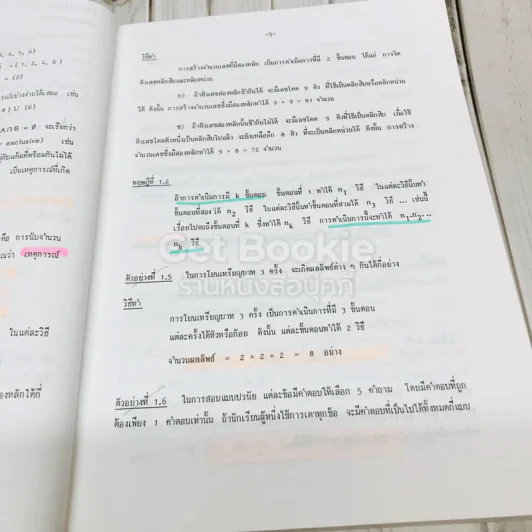 4, 5, 6)
= { 1, 2, 4, 6 }
= {2}
A∩B = Ø จะเรียกว่า
exclusive) เช่น
คือ การนับจำนวน
เหตุการณ์
ในแต่ละวิธี
-5-
วิธีทำ
การสร้างจำนวนเลขที่มีสองหลัก เป็นการดำเนินการที่มี 2 ขั้นตอน ได้แก่ การจัด
ตัวเลขหลักสิบและหลักหน่วย
ก) ถ้าตัวเลขสองหลักซ้ำกันได้ จะมีเลขโดด 9 ตัว ที่ใช้เป็นหลักสิบหรือหลักหน่วย
ได้ ดังนั้น การสร้างจำนวนเลขซึ่งมีสองหลักทำได้ 9 × 9 = 81 จำนวน
ข) ถ้าตัวเลขสองหลักนั้นซ้ำกันไม่ได้ จะมีเลขโดด 9 ตัวที่ใช้เป็นหลักสิบ เมื่อใช้
ตัวเลขโดดตัวหนึ่งเป็นหลักสิบไปแล้ว จะยังเหลืออีก 8 ตัว ที่จะเป็นหลักหน่วยได้ ดังนั้น การสร้าง
จำนวนเลขซึ่งมีสองหลักทำได้ 9 × 8 = 72 จำนวน
ทฤษฎีที่ 1.2
ถ้าการดำเนินการมี k ขั้นตอน ขั้นตอนที่ 1 ทำได้ n1 วิธี ในแต่ละวิธีนั้นทำ
ขั้นตอนที่สองได้ n2 วิธี ในแต่ละวิธีนั้นทำขั้นตอนที่สามได้ n3 วิธี ... เช่นนี้
เรื่อยไปจนถึงขั้นตอนที่ k ซึ่งทำได้ nk วิธี การดำเนินการนี้จะทำได้ n1.n2...
nk วิธี
Get Bookie
ร้านหนังสือบุคกี้
ตัวอย่างที่ 1.5 ในการโยนเหรียญบาท 3 ครั้ง จะเกิดผลลัพธ์ต่าง ๆ กันได้กี่อย่าง
วิธีทำ
การโยนเหรียญบาท 3 ครั้ง เป็นการดำเนินการที่มี 3 ขั้นตอน
แต่ละครั้งได้หัวหรือก้อย ดังนั้น แต่ละขั้นตอนทำได้ 2 วิธี
จำนวนผลลัพธ์ = 2 × 2 × 2 = 8 อย่าง
ตัวอย่างที่ 1.6 ในการสอบแบบปรนัย แต่ละข้อมีคำตอบให้เลือก 5 คำถาม โดยมีคำตอบที่ถูก
ต้องเพียง 1 คำตอบเท่านั้น ถ้านักเรียนผู้หนึ่งใช้การเดาทุกข้อ จะมีคำตอบที่เป็นไปได้ทั้งหมดกี่แบบ